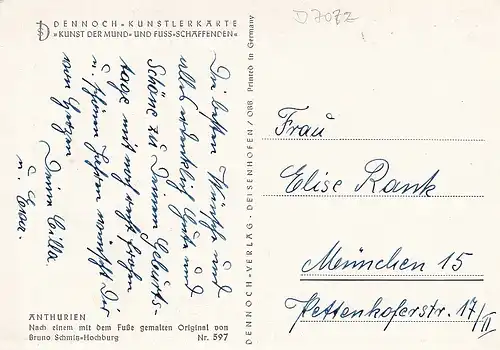 DENNOCH-KUNSTLERKARTE
»KUNST DER MUND- UND FUSS-SCHAFFENDEN«
Die besten Wünsche und
alles erdenklich Gute und
Schöne zu Deinem Geburts-
tage mit noch recht frohen
u. schönen Jahren wünscht Dir
von Herzen
Deine Cilla
u.
ANTHURIEN
Nach einem mit dem Fuße gemalten Original von
Bruno Schmitz-Hochburg Nr. 597
DENNOCH-VERLAG · DEISENHOFEN / OBB Printed in Germany
D7072
Frau
Elise Rank
München 15
Pettenkoferstr. 17/II